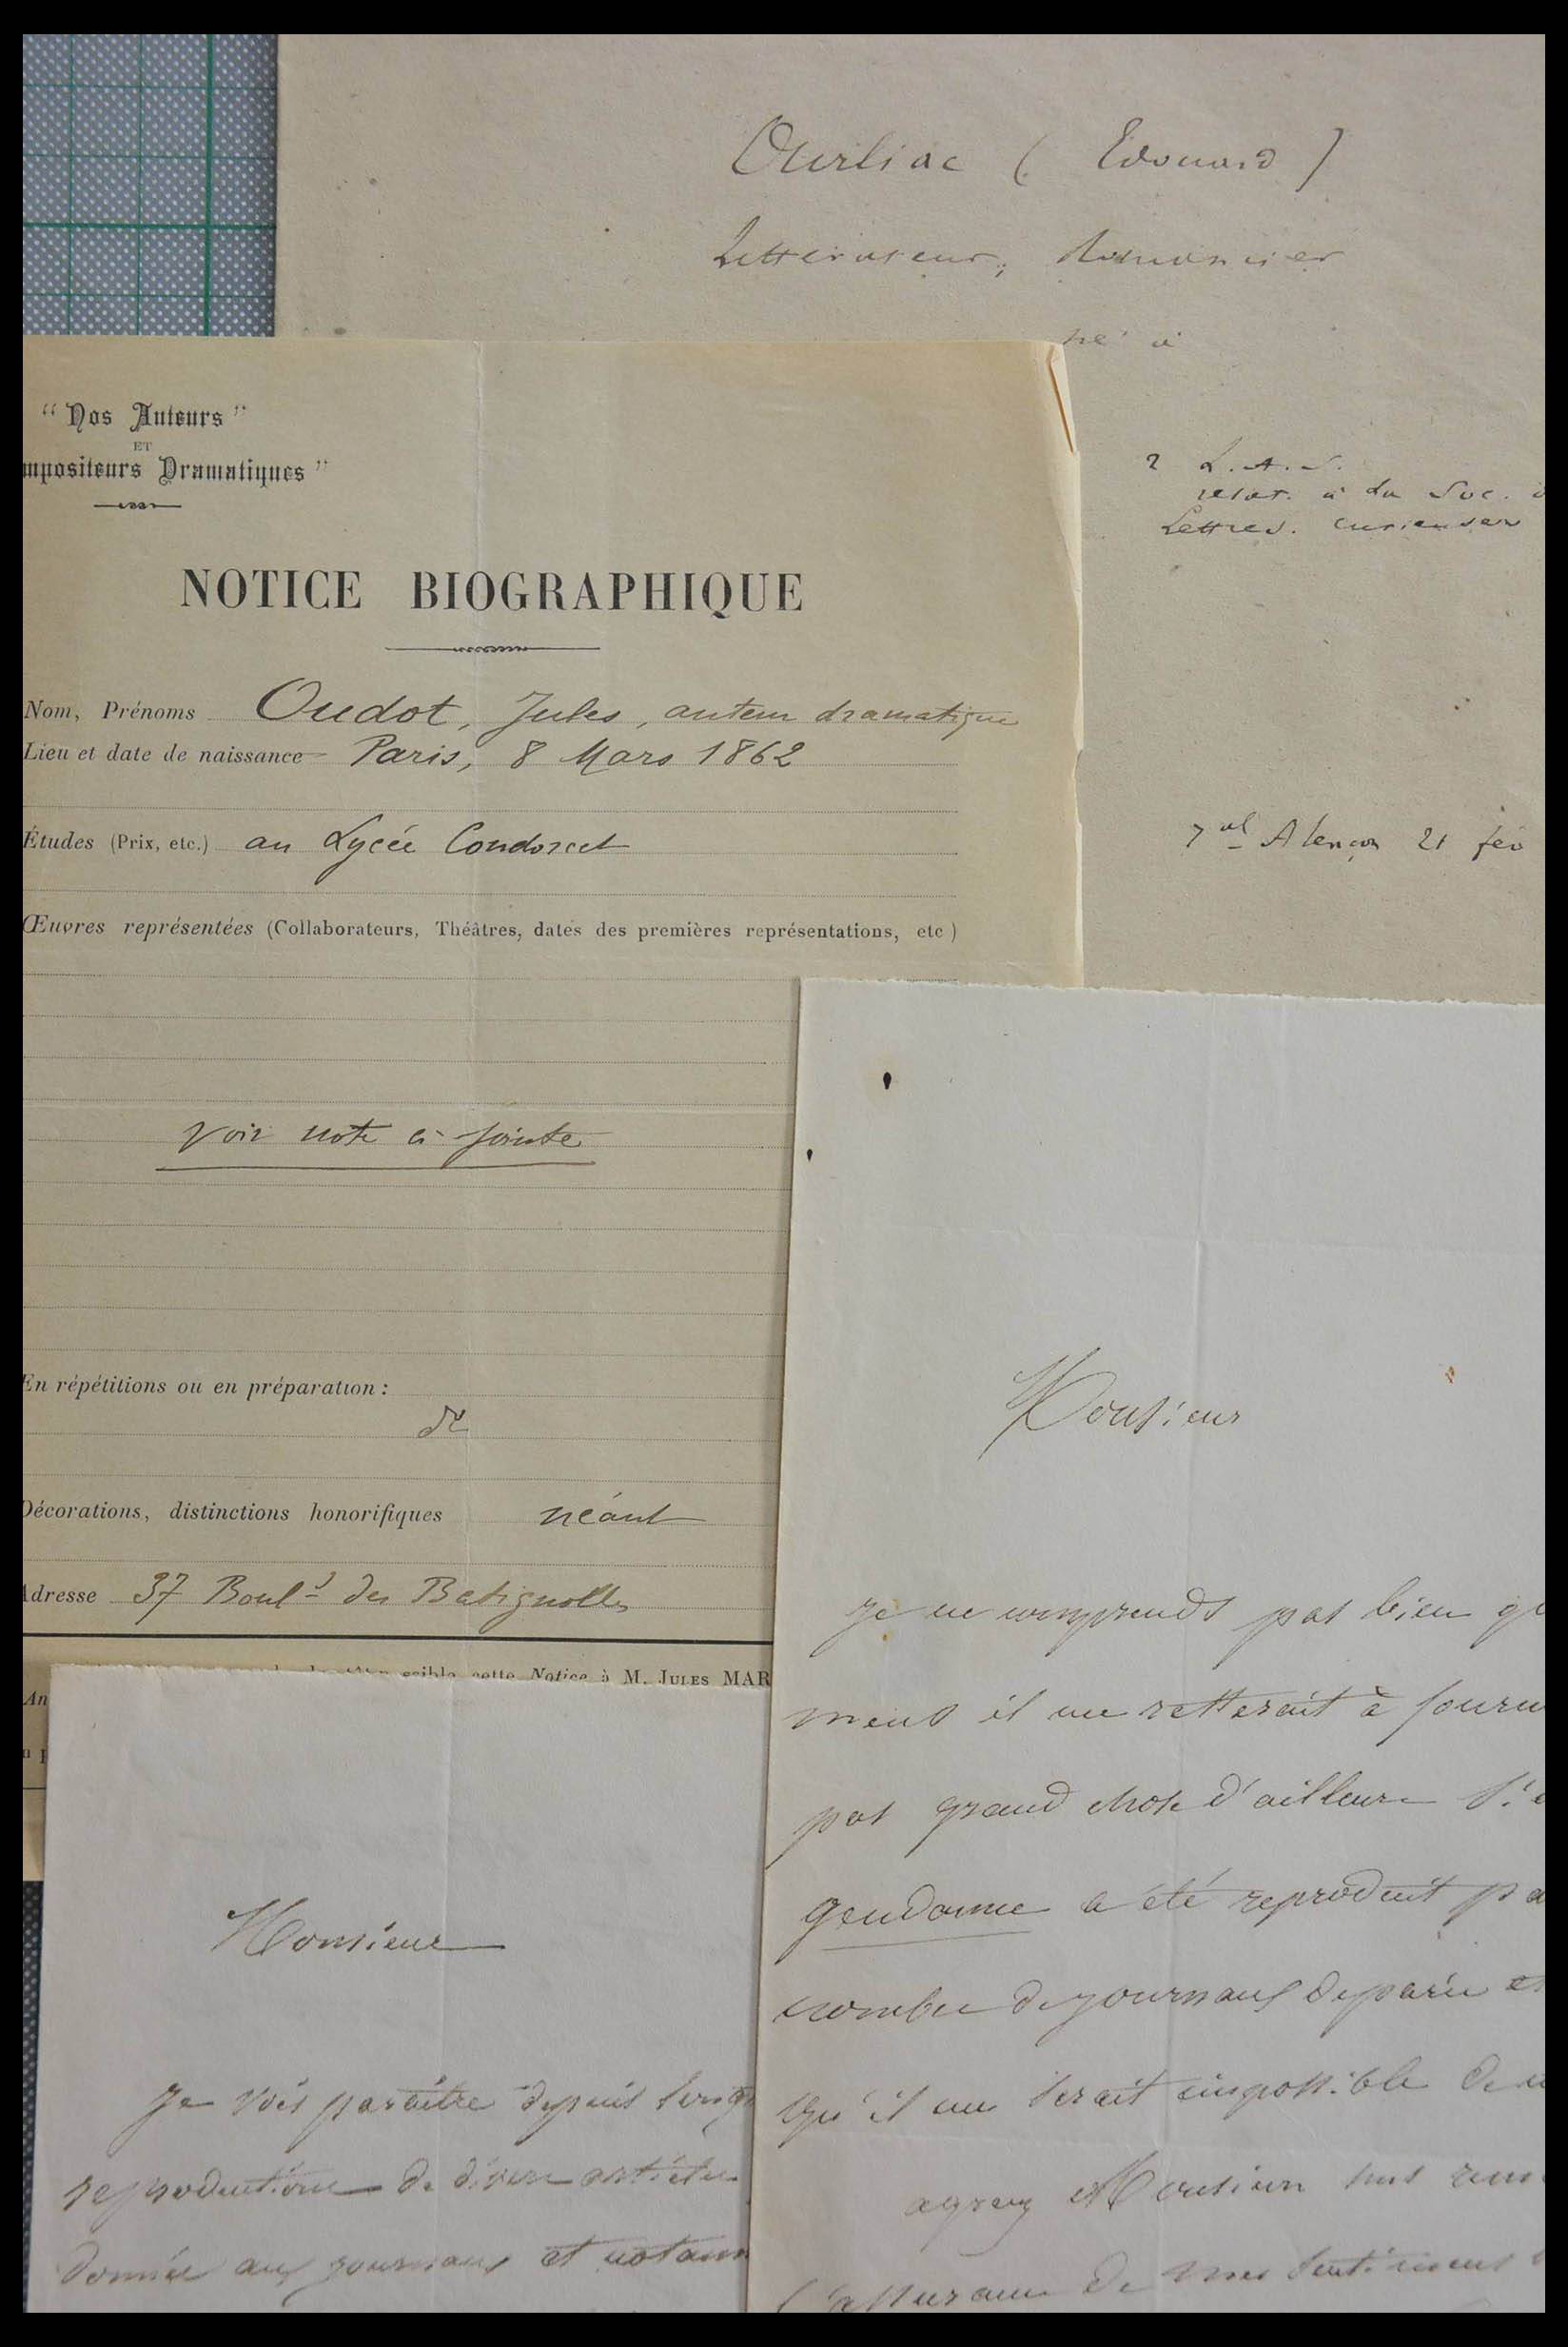 Ourliac ( Edouard )
Littérateur, Romancier
né à
2 L.A.S.
relat. à la Soc. d
Lettres. curieuses
7al Alençon 21 fév
"Nos Auteurs"
ET
mpositeurs Dramatiques"
NOTICE BIOGRAPHIQUE
Nom, Prénoms Oudot, Jules, auteur dramatique
Lieu et date de naissance Paris, 8 Mars 1862
Études (Prix, etc.) au Lycée Condorcet
Œuvres représentées (Collaborateurs, Théâtres, dates des premières représentations, etc)
Voir note ci-jointe
En répétitions ou en préparation :
do
Décorations, distinctions honorifiques néant
Adresse 37 Boul.d des Batignolles
cette Notice à M. JULES MAR
An
Monsieur
je ne comprends pas bien q
mens il me resterait à fourn
pas grand chose d'ailleurs
gendarme a été reproduit pa
nombre de journaux de paris et
qu'il me serait impossible de
agreez Monsieur mes rem
l'assurance de mes sentimens
Monsieur
Je vois paraître depuis long
reproductions de divers articles
donnés aux journaux et notam